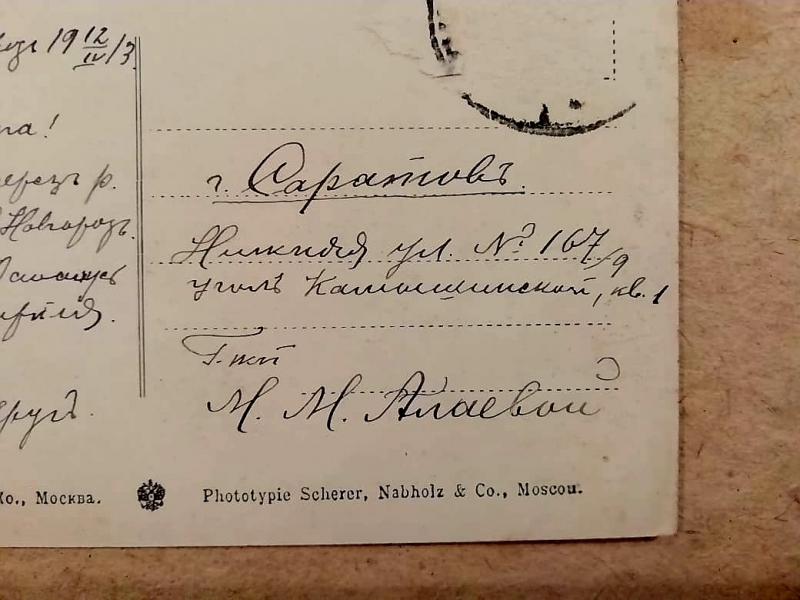 19 12/IV 13
г. Саратовъ.
через р.
Новгород.
Нижняя ул. № 167/9
уголъ Камышинской, кв. 1
Г-жѣ
М. М. Алаевой
Ко., Москва.
Phototypie Scherer, Nabholz & Co., Moscou.